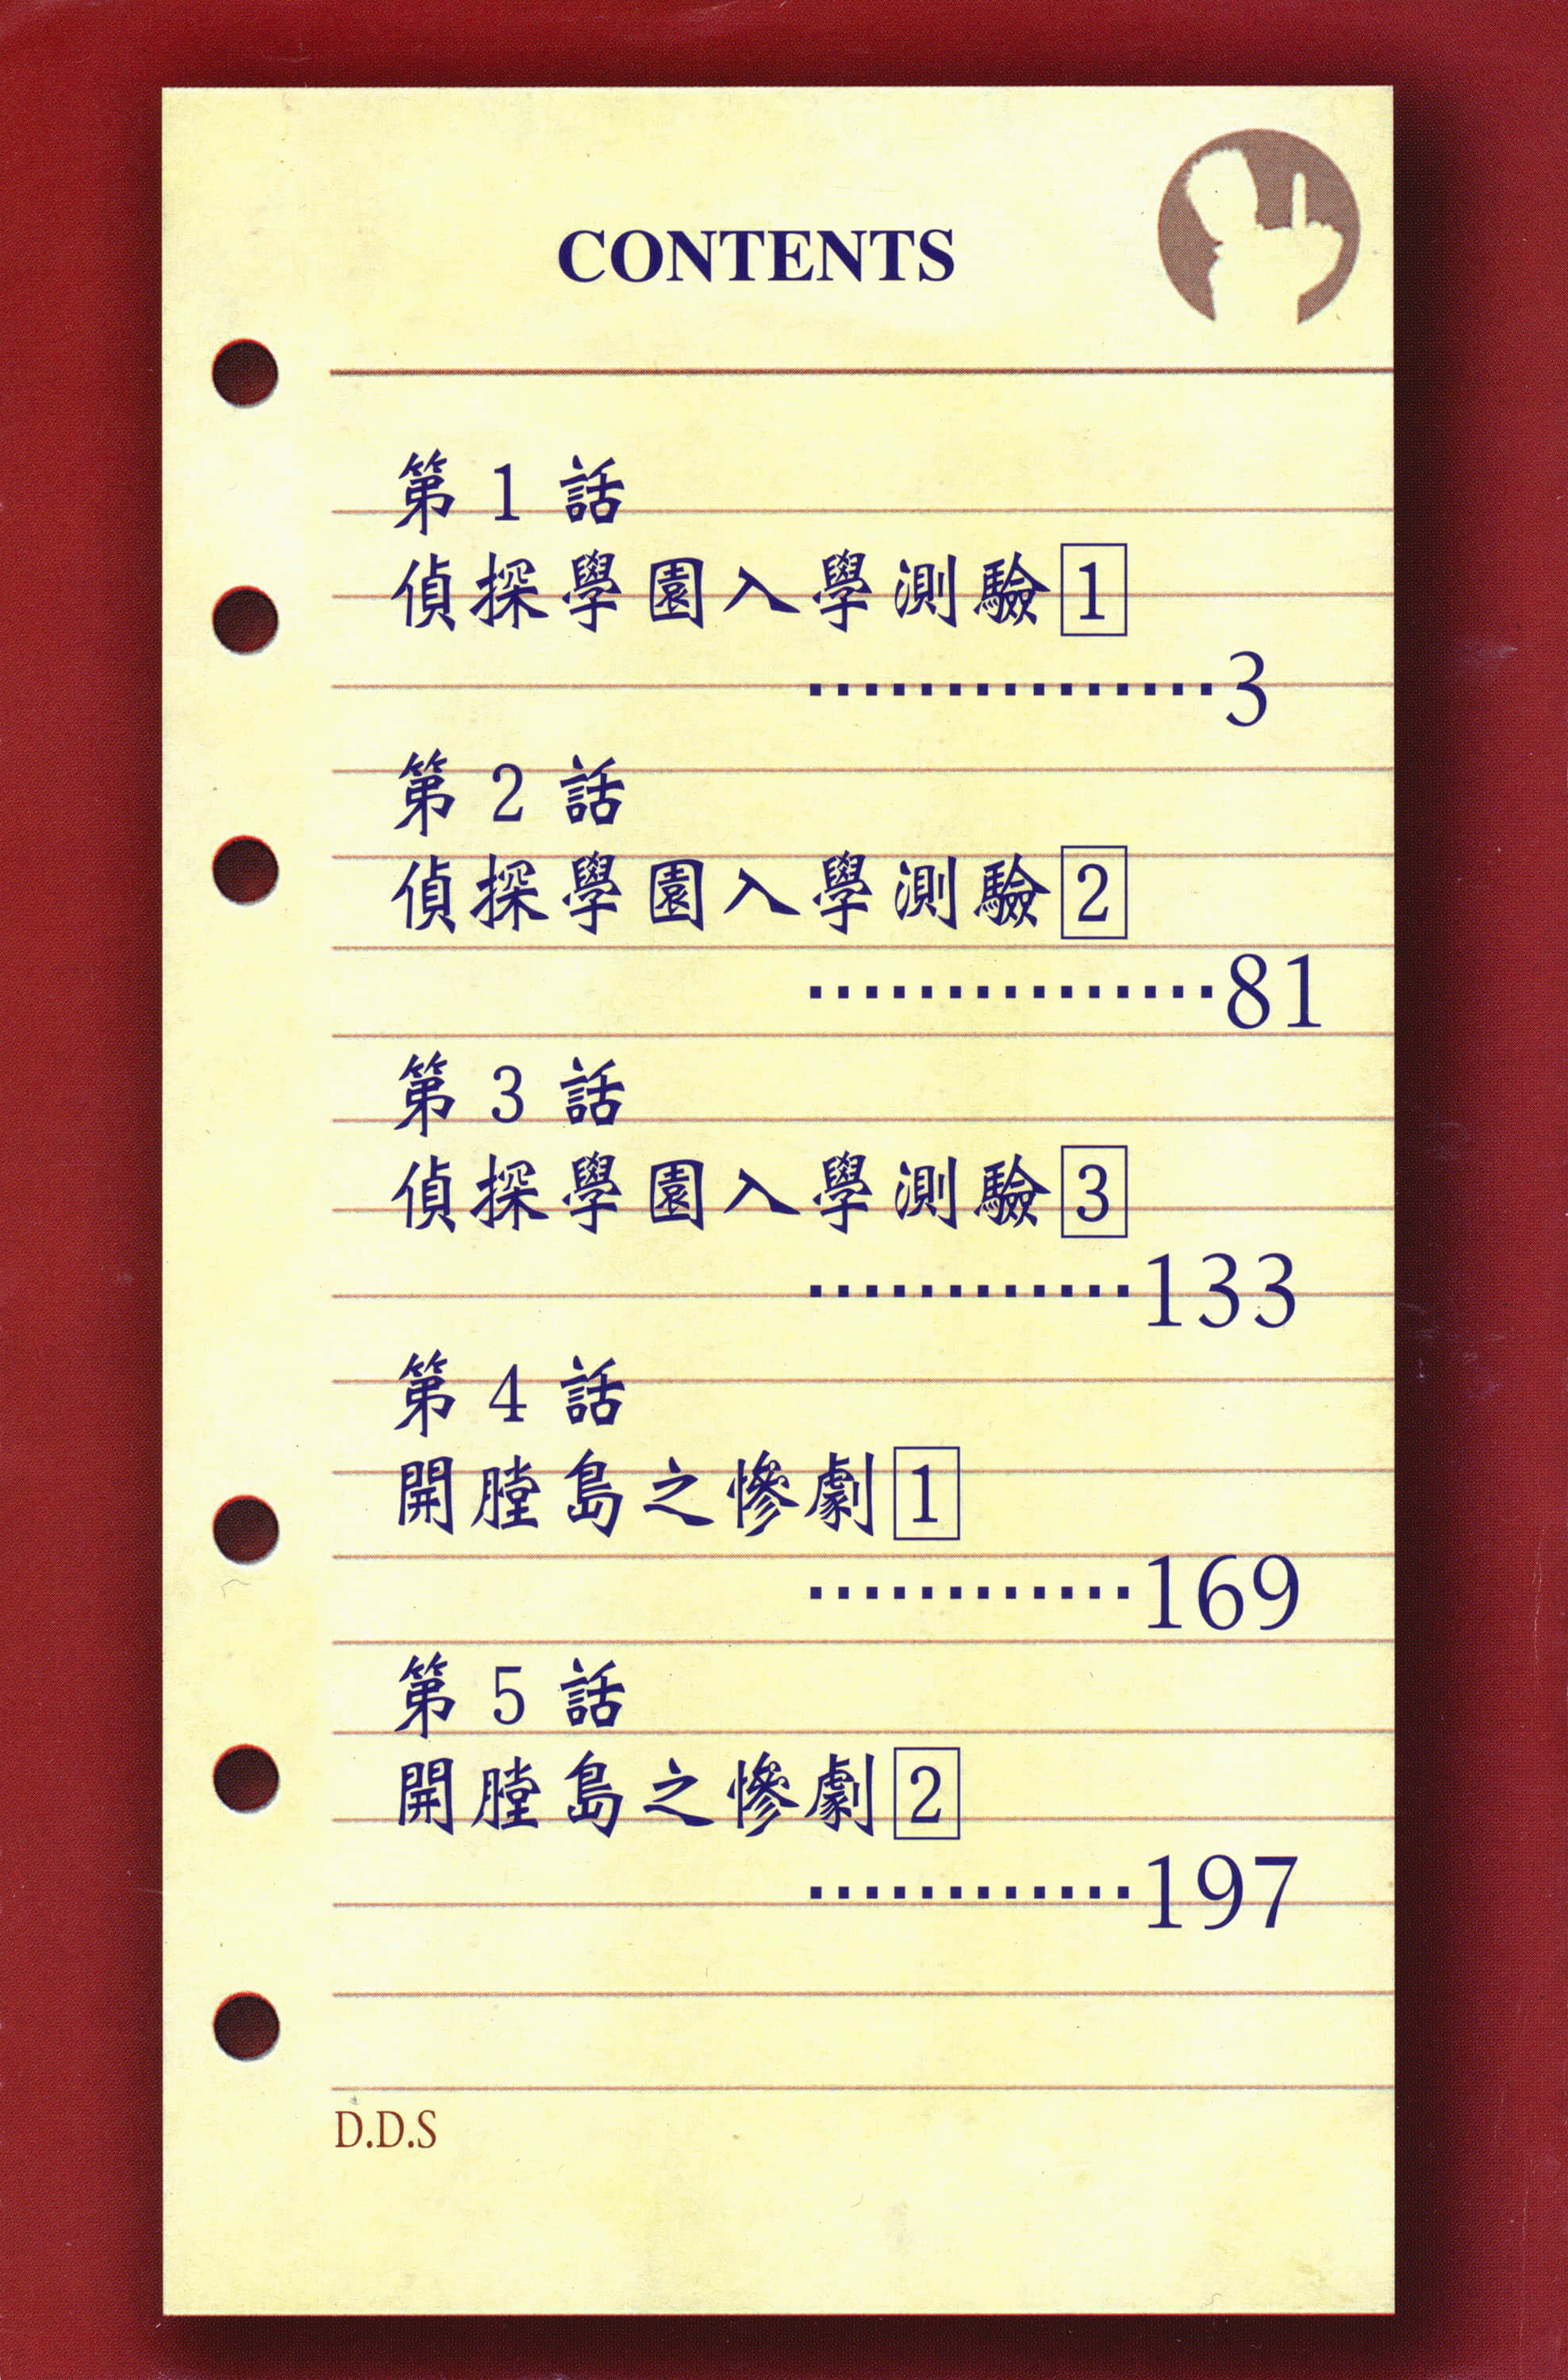 CONTENTS
第1話
偵探學園入學測驗1
···············3
第2話
偵探學園入學測驗2
···············81
第3話
偵探學園入學測驗3
············133
第4話
開膛島之慘劇1
············169
第5話
開膛島之慘劇2
············197
D.D.S